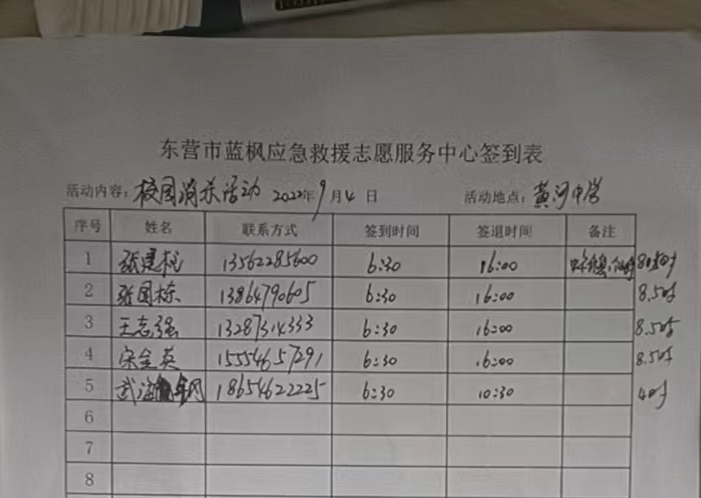 东营市蓝枫应急救援志愿服务中心签到表
活动内容：校园消杀活动 2022年9月4日 活动地点：黄河中学
序号 姓名 联系方式 签到时间 签退时间 备注
1 张建 13562285600 6:30 16:00
2 张国栋 13864790605 6:30 16:00 8.5时
3 王志强 13287314333 6:30 16:00 8.5时
4 宋金英 15554657291 6:30 16:00 8.5时
5 武海 18654622225 6:30 10:30 4时
6
7
8